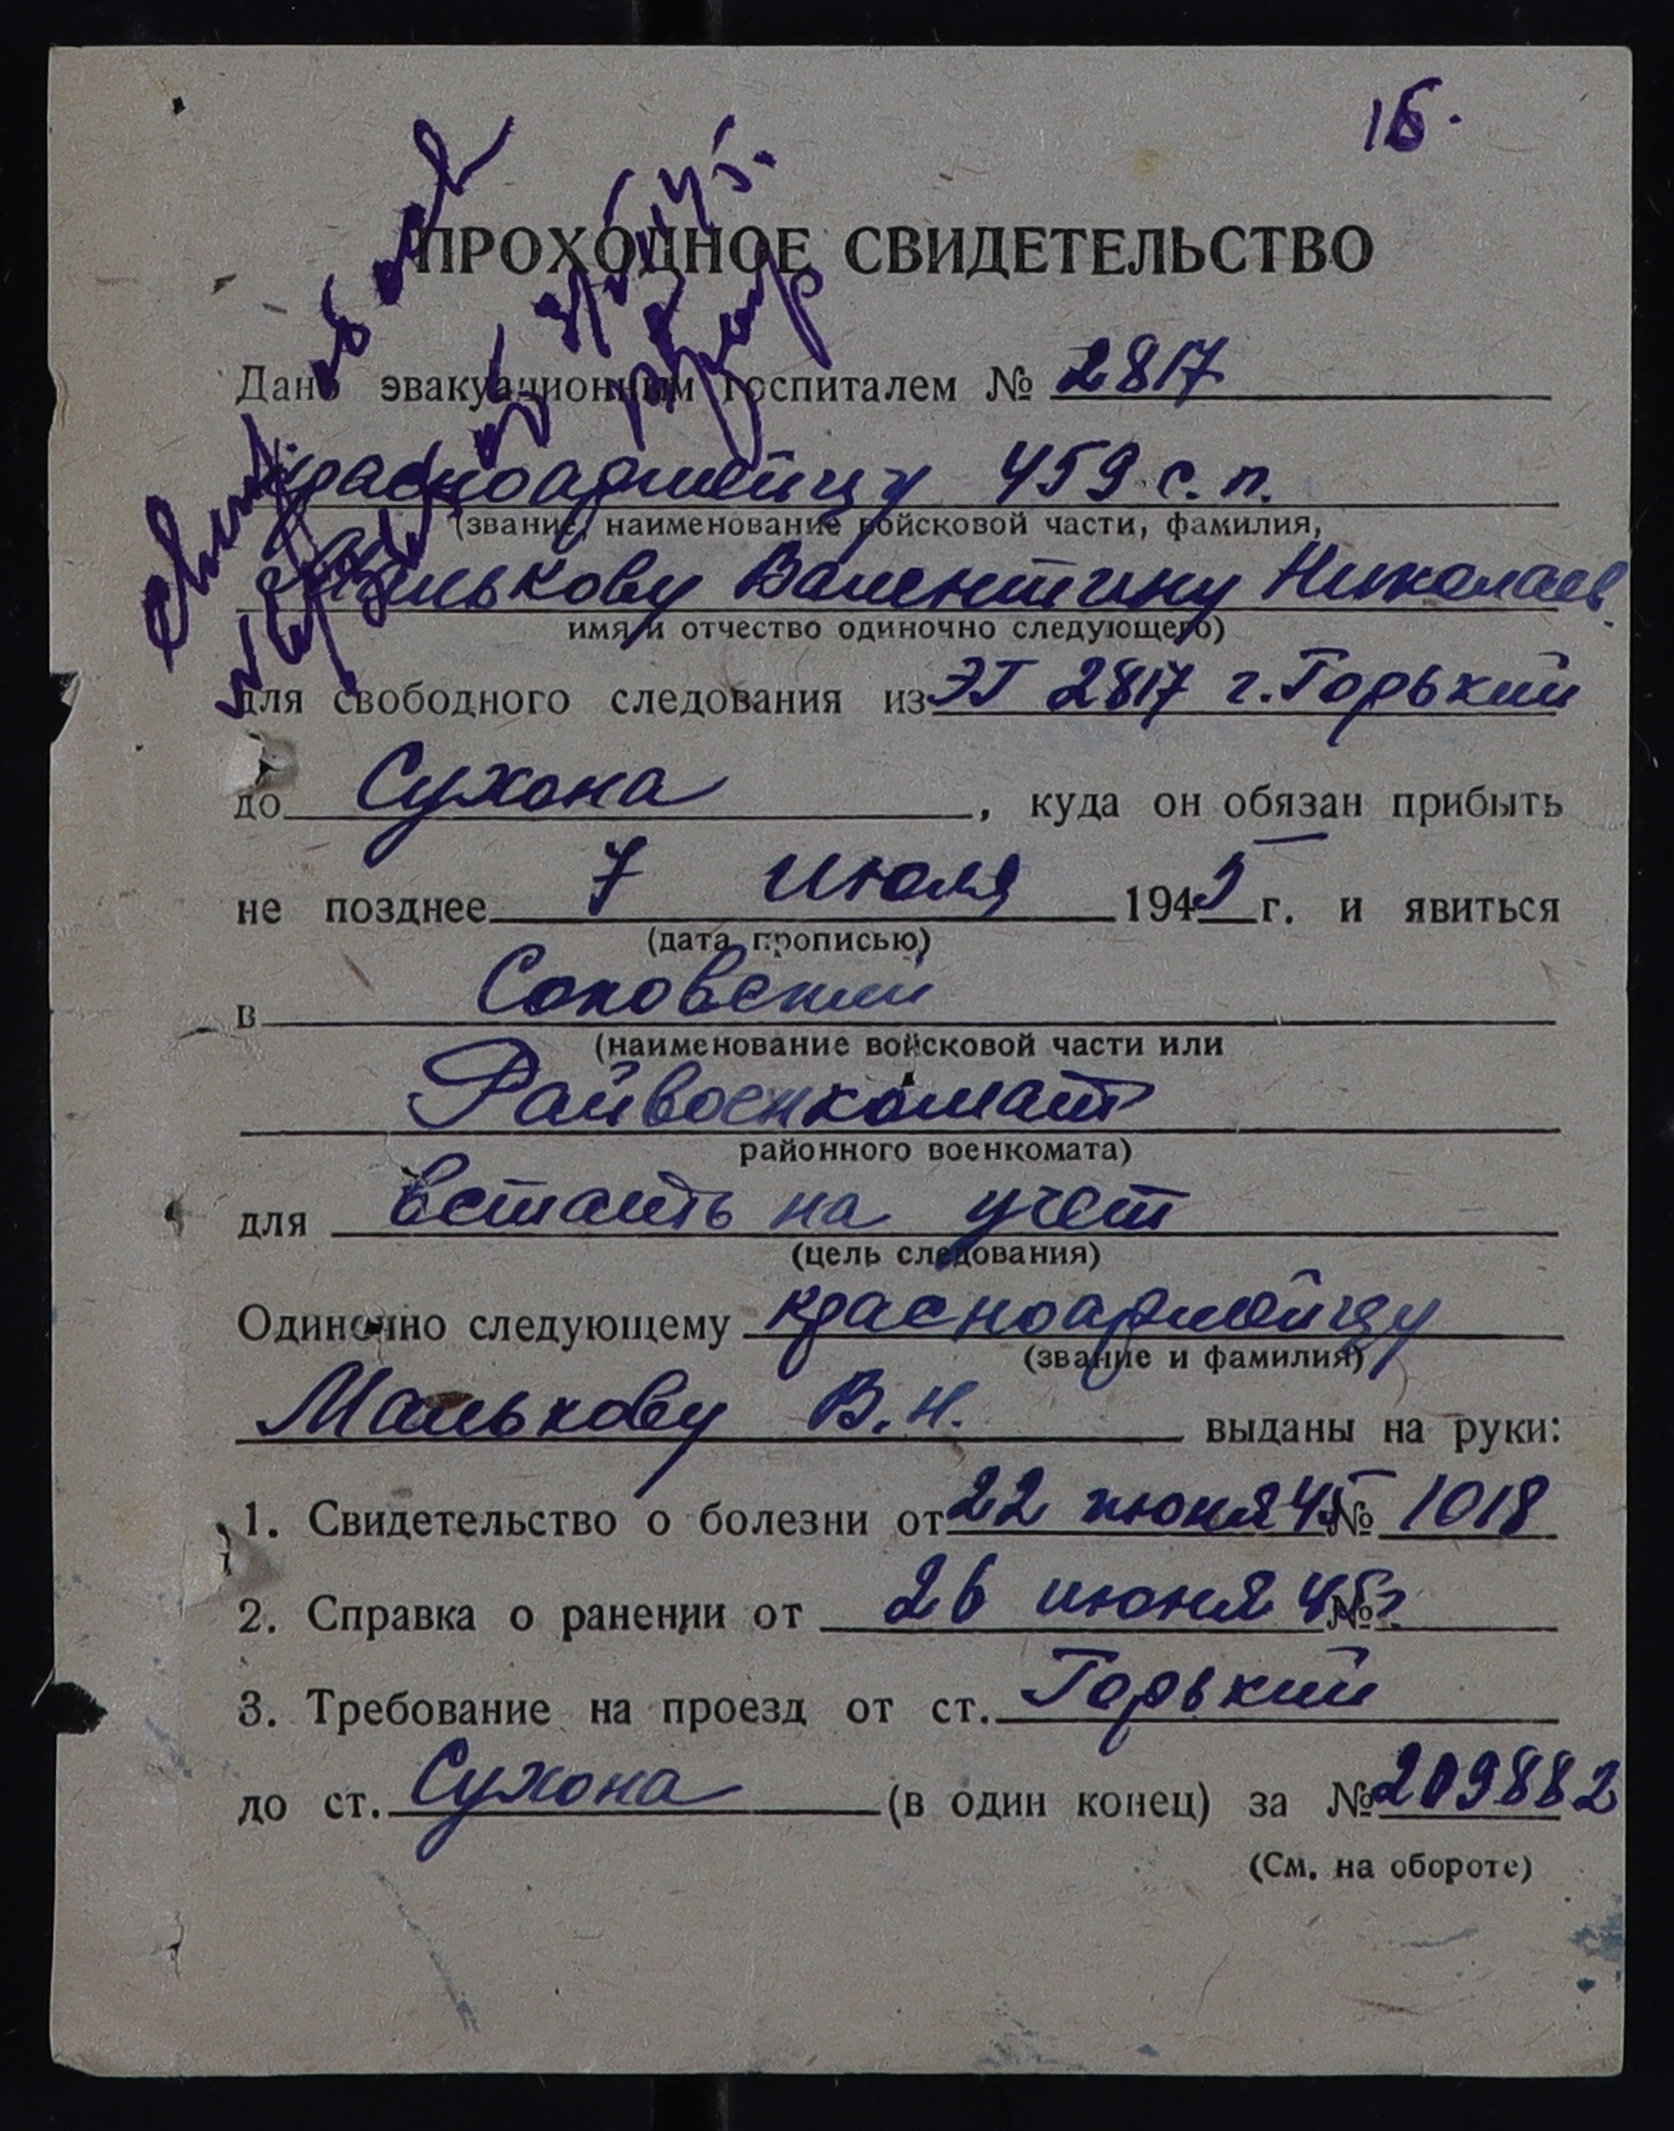 16.
ПРОХОДНОЕ СВИДЕТЕЛЬСТВО
Дано эвакуационным госпиталем № 2817
красноармейцу 459 с.п.
(звание, наименование войсковой части, фамилия,
Малькову Валентину Николаев.
имя и отчество одиночно следующего)
для свободного следования из ЭГ 2817 г. Горький
до Сухона, куда он обязан прибыть
не позднее 7 июля 1945 г. и явиться
(дата прописью)
в Соковский
(наименование войсковой части или
Райвоенкомат
районного военкомата)
для встать на учет
(цель следования)
Одиночно следующему красноармейцу
(звание и фамилия)
Малькову В.Н. выданы на руки:
1. Свидетельство о болезни от 22 июня 45 № 1018
2. Справка о ранении от 26 июня 45 г №
3. Требование на проезд от ст. Горький
до ст. Сухона (в один конец) за № 209882
(См. на обороте)